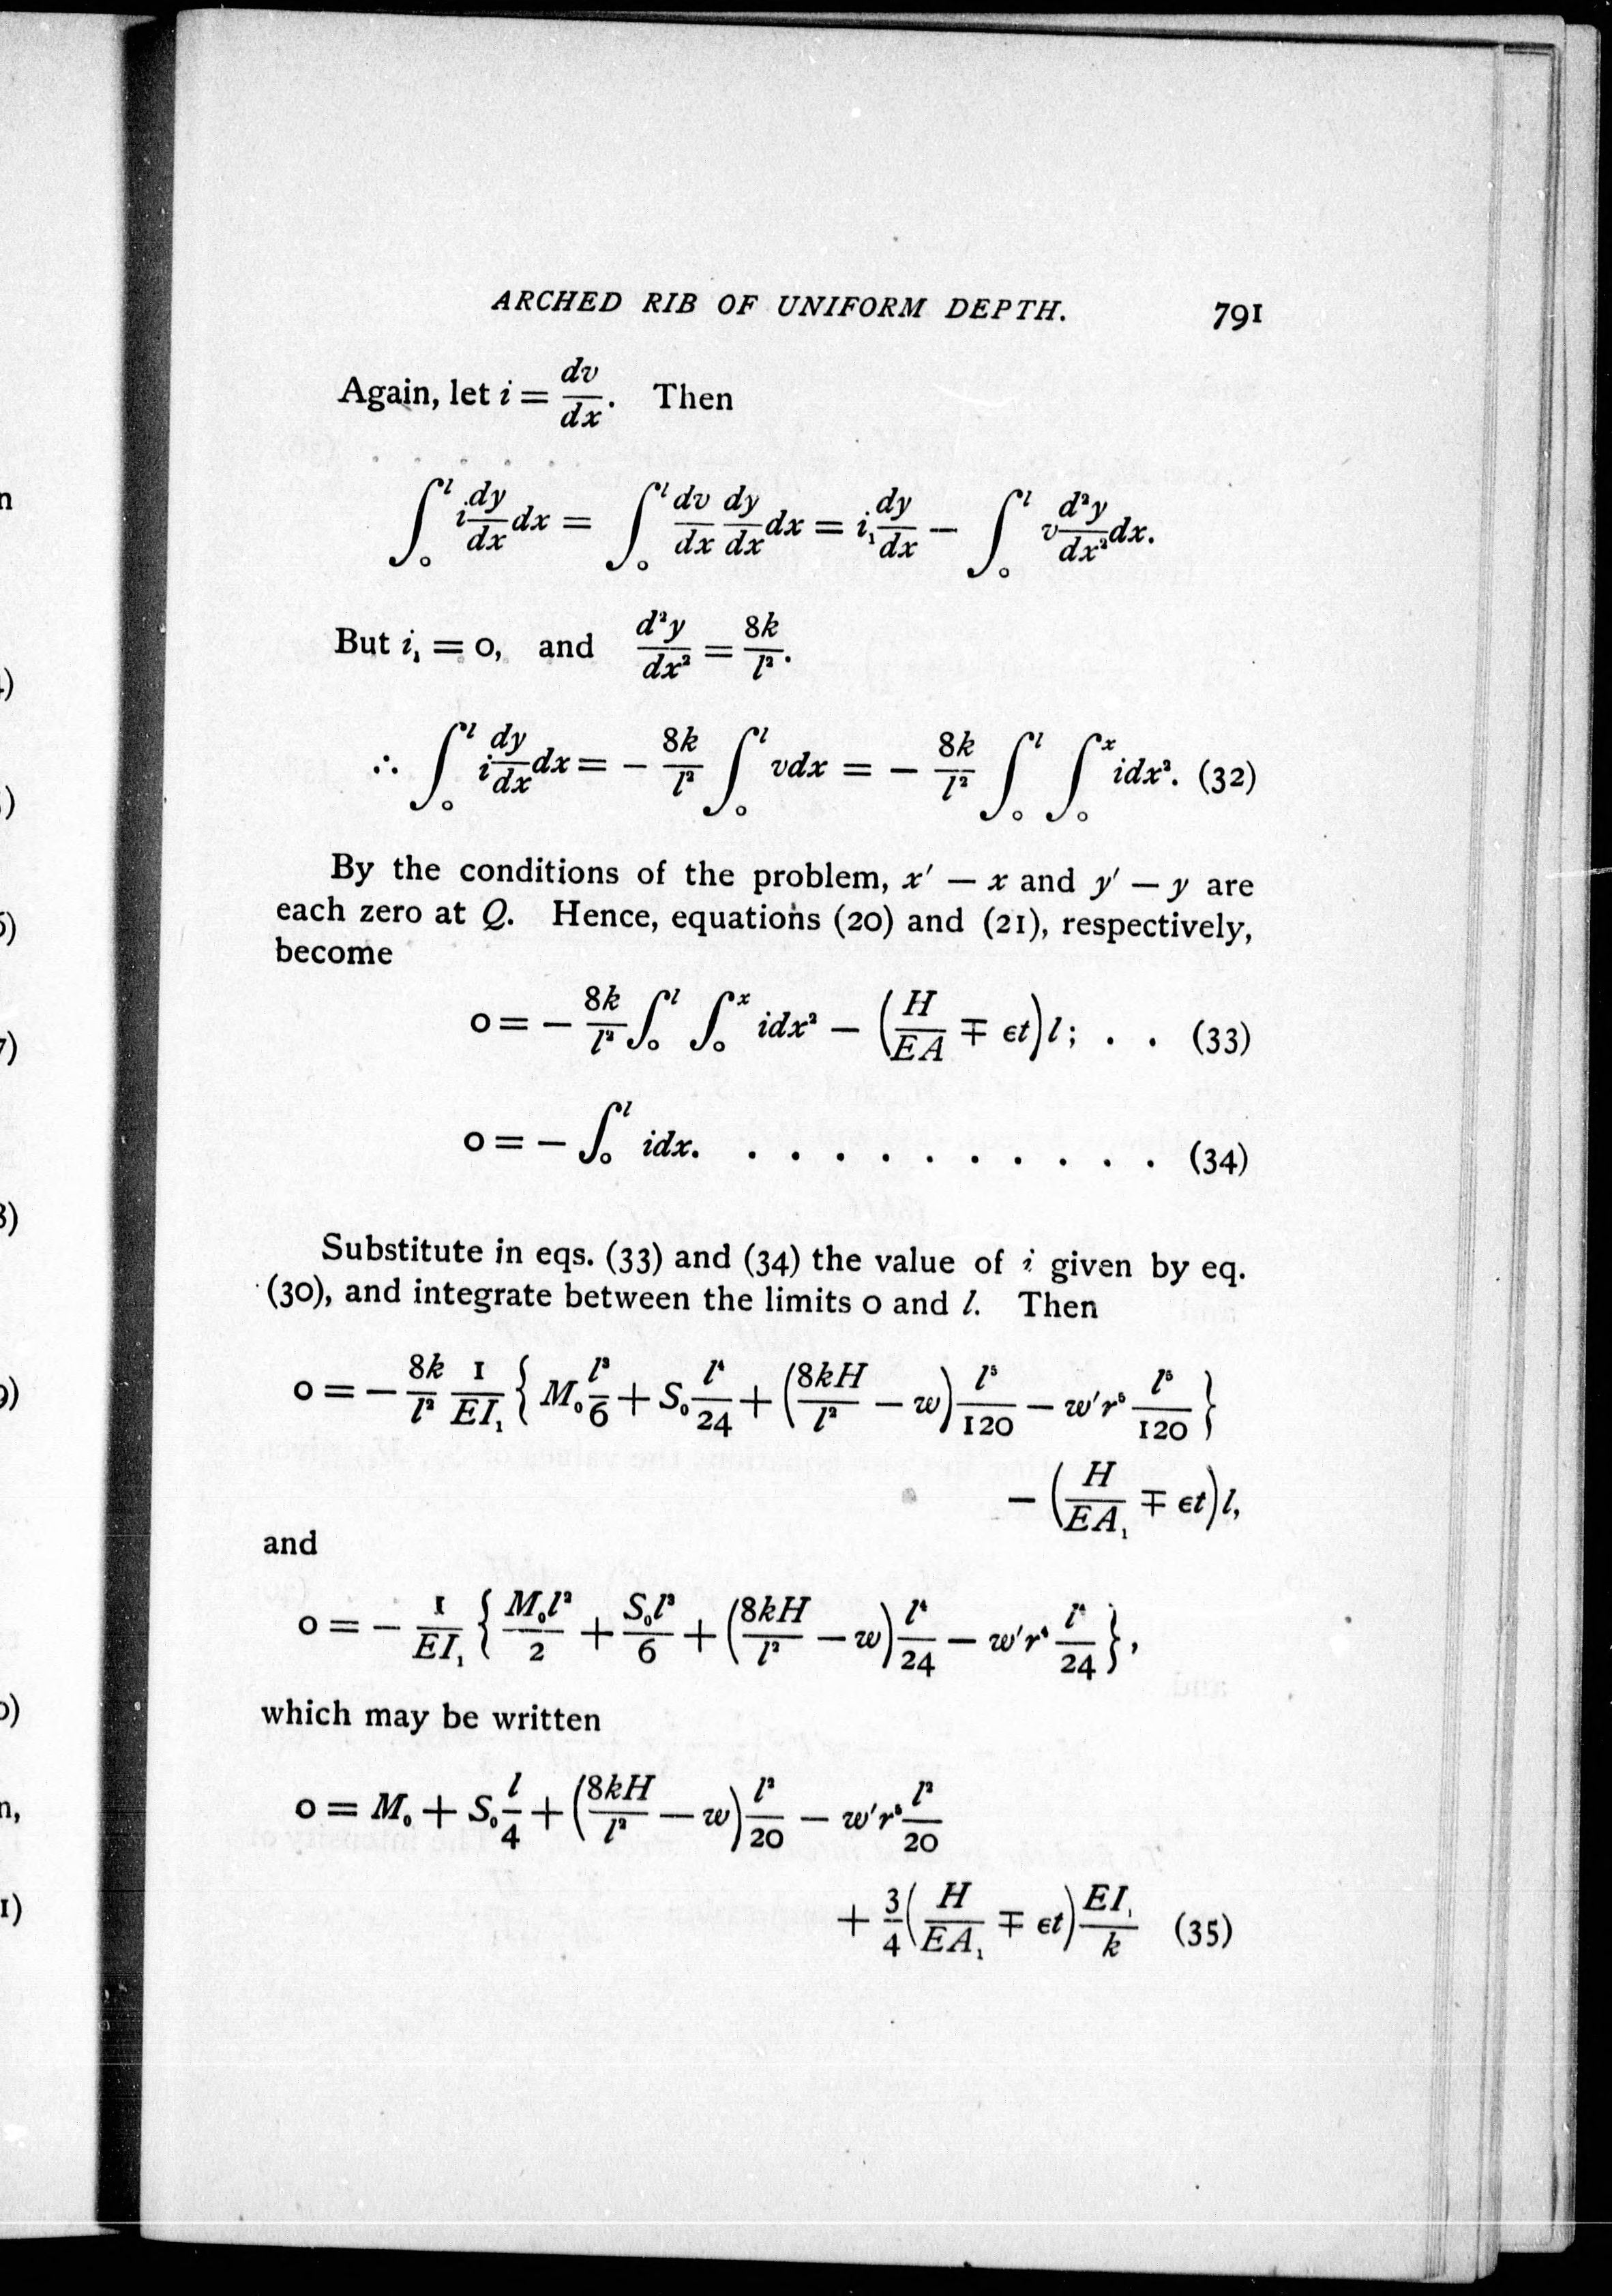 ARCHED RIB OF UNIFORM DEPTH. 791
Again, let i = dv/dx. Then
∫₀ˡ i dy/dx dx = ∫₀ˡ dv/dx dy/dx dx = i₁ dy/dx − ∫₀ˡ v d²y/dx² dx.
But i₁ = 0, and d²y/dx² = 8k/l².
∴ ∫₀ˡ i dy/dx dx = − 8k/l² ∫₀ˡ vdx = − 8k/l² ∫₀ˡ ∫₀ˣ idx². (32)
By the conditions of the problem, x′ − x and y′ − y are
each zero at Q. Hence, equations (20) and (21), respectively,
become
0 = − 8k/l² ∫₀ˡ ∫₀ˣ idx² − (H/EA ∓ ϵt)l; . . (33)
0 = − ∫₀ˡ idx. . . . . . . . . . . (34)
Substitute in eqs. (33) and (34) the value of i given by eq.
(30), and integrate between the limits 0 and l. Then
0 = − 8k/l² 1/EI₁ { M₀ l³/6 + S₀ l⁴/24 + (8kH/l² − w) l⁵/120 − w′r⁵ l⁵/120 }
− (H/EA₁ ∓ ϵt)l,
and
0 = − 1/EI₁ { M₀l²/2 + S₀l³/6 + (8kH/l² − w) l⁴/24 − w′r⁴ l⁴/24 },
which may be written
0 = M₀ + S₀ l/4 + (8kH/l² − w) l²/20 − w′r⁵ l²/20
+ 3/4 (H/EA₁ ∓ ϵt) EI₁/k (35)